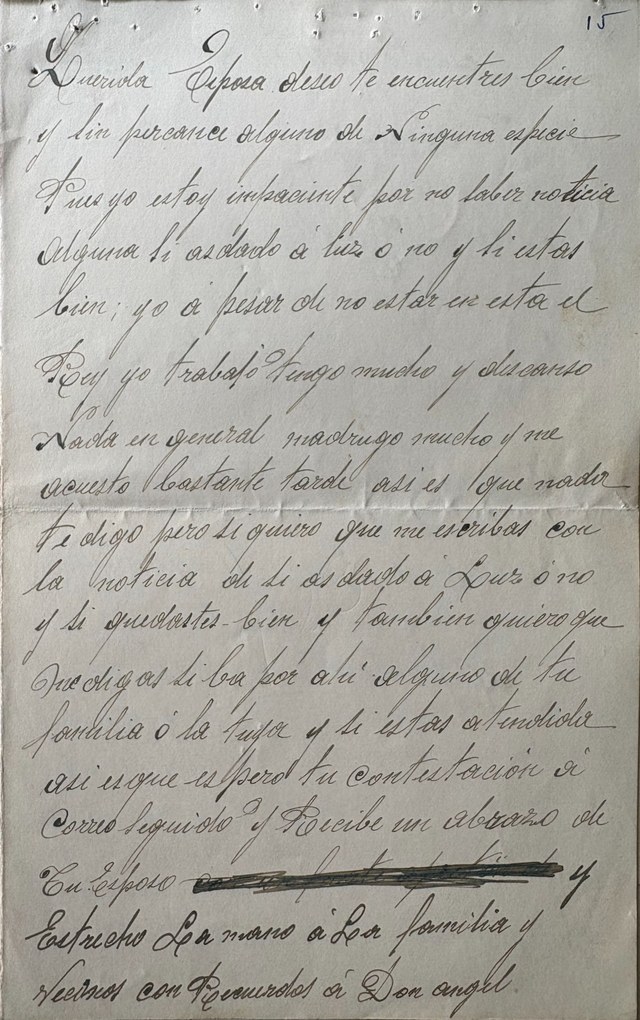 15
Querida Esposa deseo te encuentres bien
y sin percance alguno de Ninguna especie
Pues yo estoy impaciente por no saber noticia
alguna si as dado á luz ó no y si estas
bien; yo á pesar de no estar en esta el
Rey yo trabajo tengo mucho y descanso
Nada en general madrugo mucho y me
acuesto bastante tarde asi es que nada
te digo pero si quiero que me escribas con
la noticia de si as dado á Luz ó no
y si quedastes bien y tambien quiero que
me digas si ba por ahí alguno de tu
familia ó la tuya y si estas atendida
asi es que espero tu contestación á
Correo seguido y Recibe un abrazo de
Tu Esposo y
Estrecho La mano á La familia y
Vecinos con Recuerdos á Don angel.